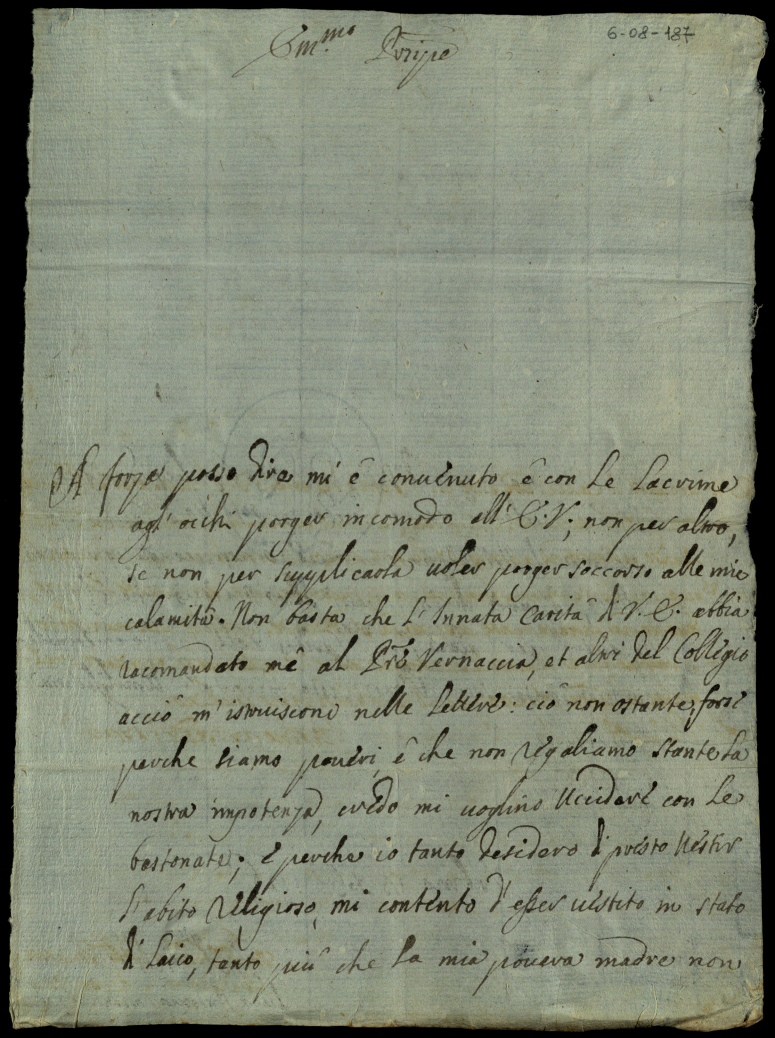 6-08-187
Em.mo Prnpe
A forza posso dire mi è conuenuto è con le Lacrime
agl' occhi porger incomodo all' E.V; non per altro,
se non per supplicarla uoler porger soccorso alle mie
calamità. Non basta che l' Innata Carità di V.E. abbia
racomandato mè al Pre Vernaccia, et altri del Collegio
acciò m' istruiscono nelle lettere: ciò non ostante, forse
perche siamo poueri, è che non regaliamo stante la
nostra impotenza, credo mi uoglino Uccidere con le
bastonate; è perche io tanto desidero di presto Uestir
l' abito religioso, mi contento d' esser uestito in stato
di Laico, tanto più che la mia pouera madre non